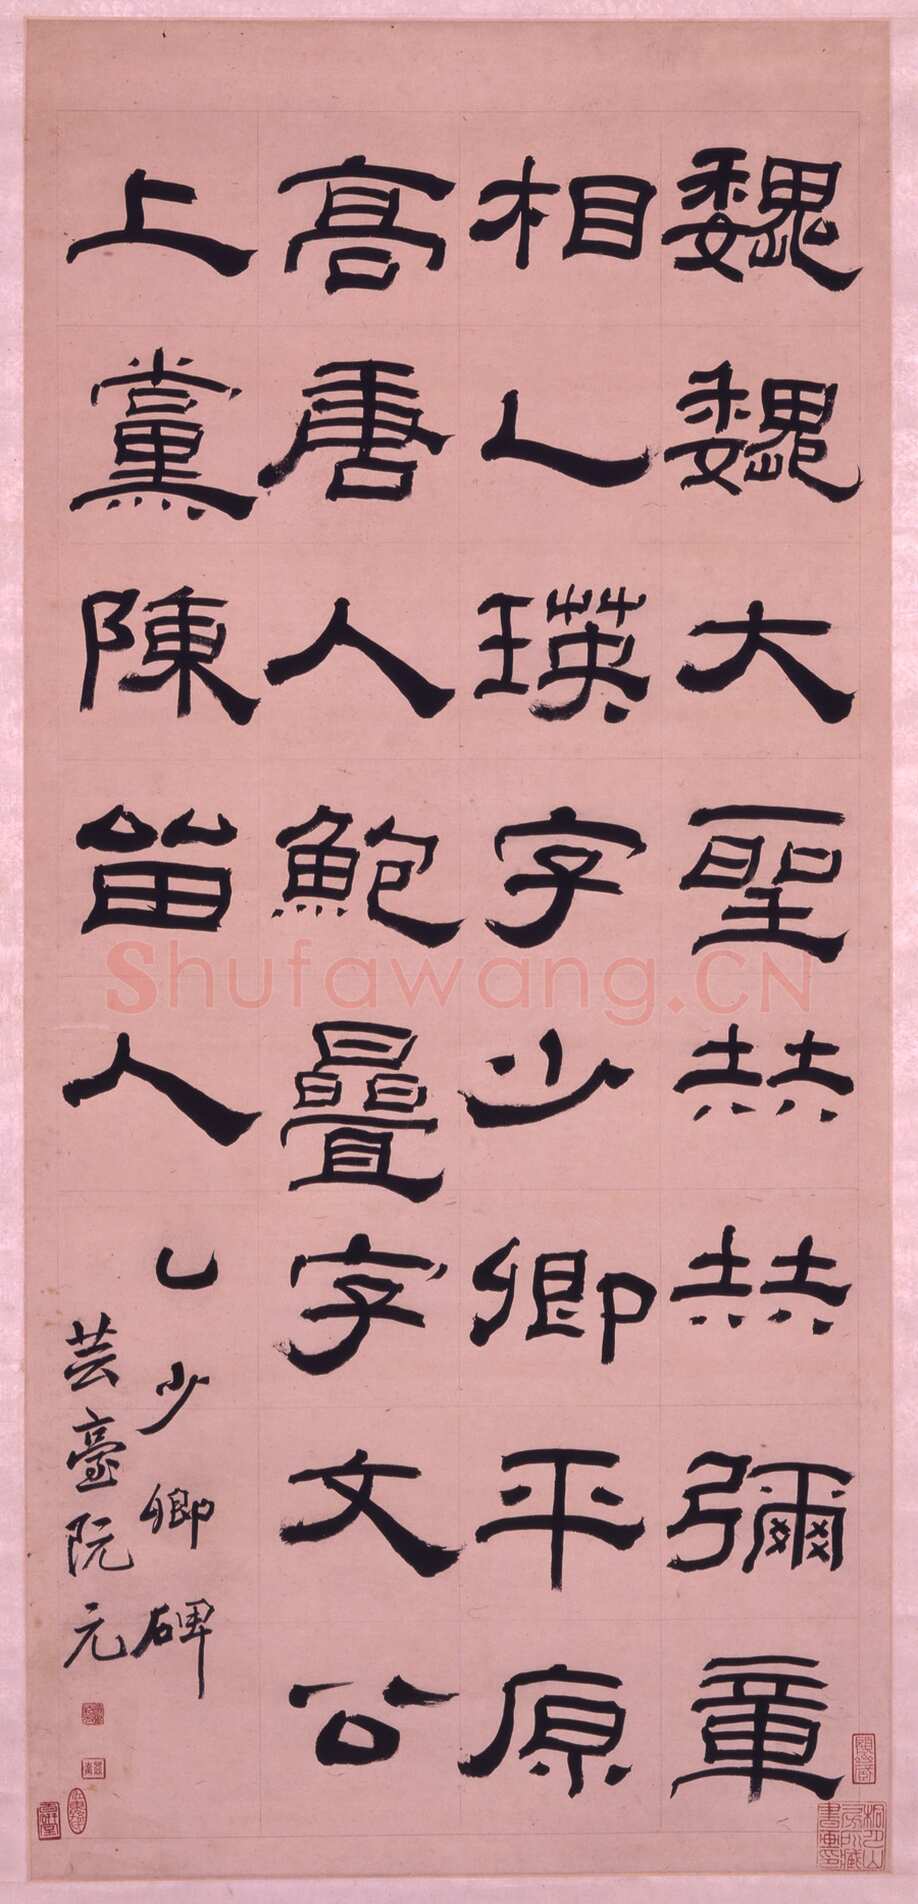 魏魏大聖赫赫彌章
相乙瑛字少卿平原
高唐人鮑疊字文公
上黨陳留人
乙少卿碑
芸臺阮元
Shufawang.CN